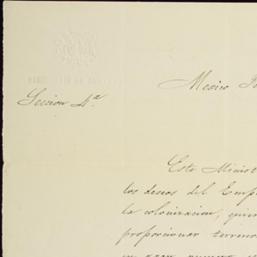 Mexico
Seccion 4ª
Este Minist
los deseos del Emp
la colonizacion, quie
proporcionar terreno